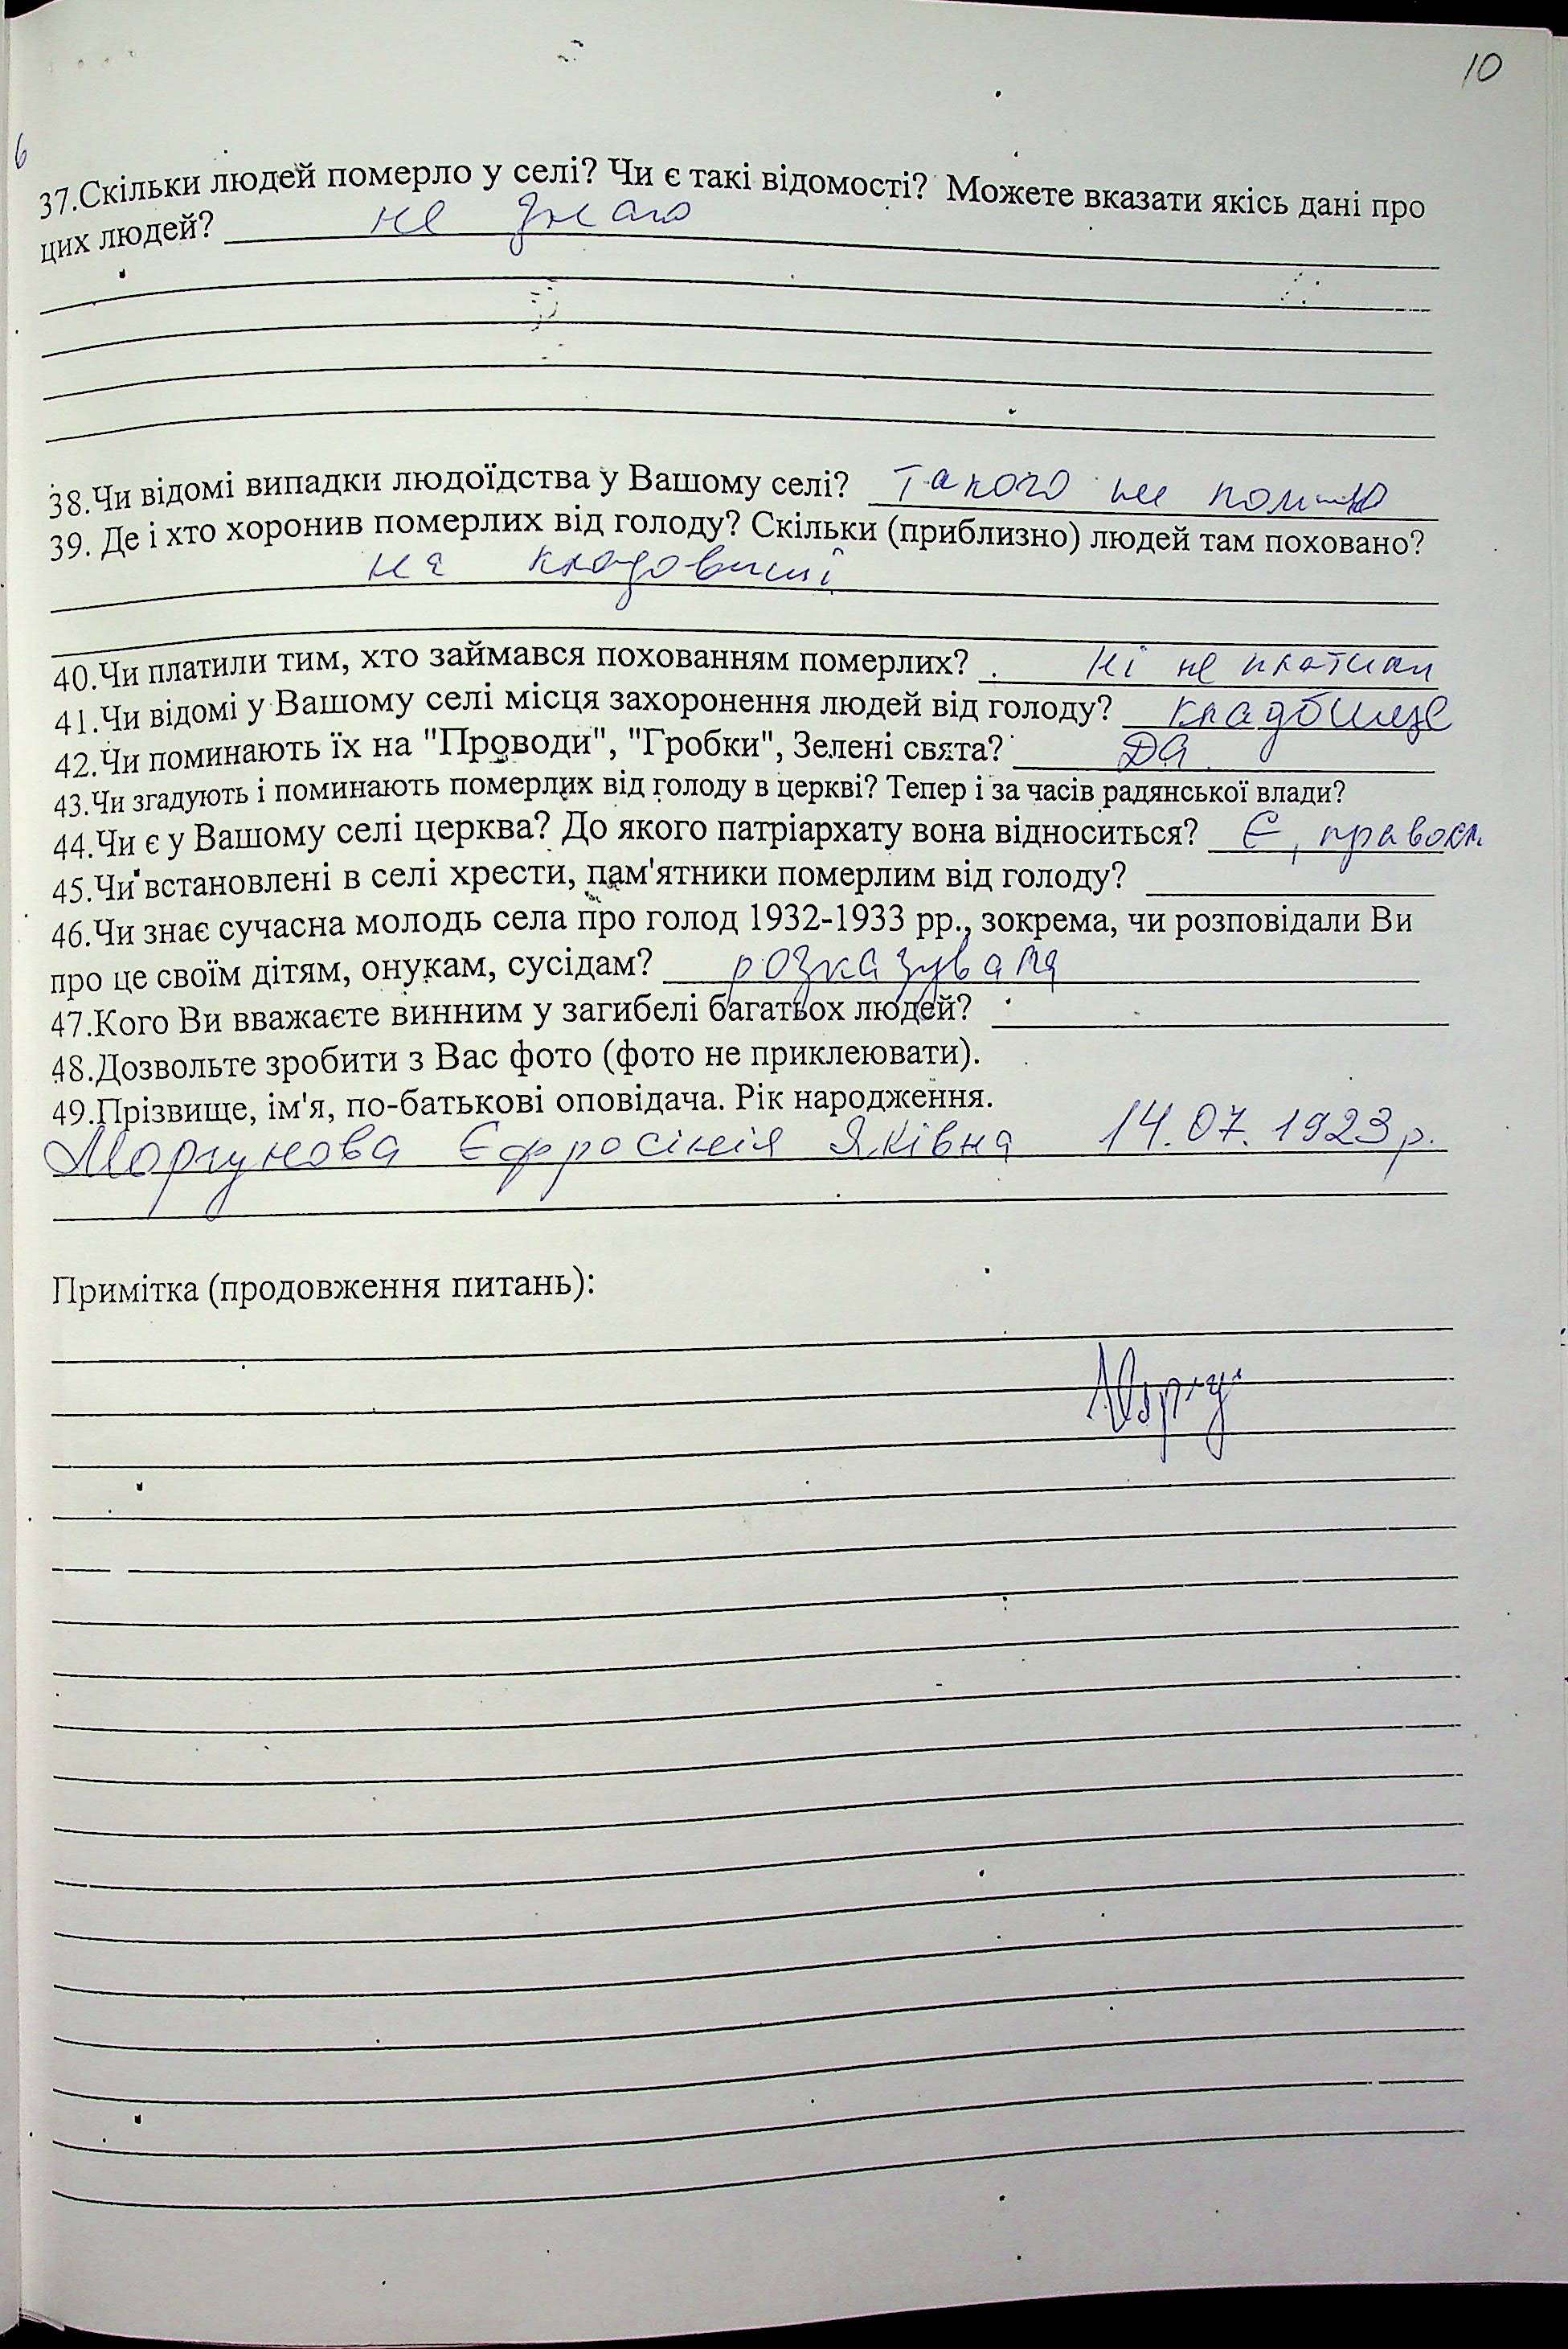 10
6
37.Скільки людей померло у селі? Чи є такі відомості? Можете вказати якісь дані про
цих людей? не знаю
38.Чи відомі випадки людоїдства у Вашому селі? такого не помню
39. Де і хто хоронив померлих від голоду? Скільки (приблизно) людей там поховано?
на кладовищі
40.Чи платили тим, хто займався похованням померлих? ні не платили
41.Чи відомі у Вашому селі місця захоронення людей від голоду? кладбище
42.Чи поминають їх на "Проводи", "Гробки", Зелені свята? Да
43.Чи згадують і поминають померлих від голоду в церкві? Тепер і за часів радянської влади?
44.Чи є у Вашому селі церква? До якого патріархату вона відноситься? Є, правосл.
45.Чи встановлені в селі хрести, пам'ятники померлим від голоду?
46.Чи знає сучасна молодь села про голод 1932-1933 рр., зокрема, чи розповідали Ви
про це своїм дітям, онукам, сусідам? розказувала
47.Кого Ви вважаєте винним у загибелі багатьох людей?
48.Дозвольте зробити з Вас фото (фото не приклеювати).
49.Прізвище, ім'я, по-батькові оповідача. Рік народження.
Моргунова Єфросінія Яківна 14.07.1923р.
Примітка (продовження питань):